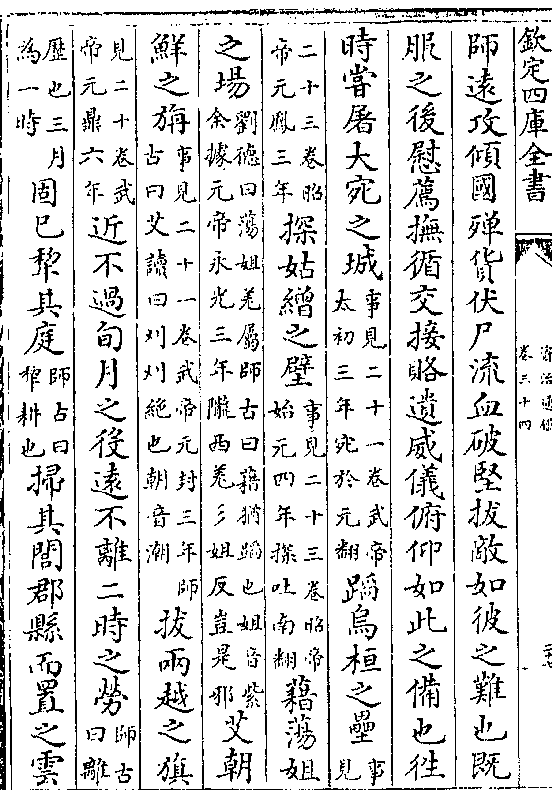 欽定四庫全書
資治通鑑
卷三十四
師遠攻傾國殫貨伏尸流血破堅拔敵如彼之難也既
服之後慰薦撫循交接賂遺威儀俯仰如此之備也徃
時嘗屠大宛之城事見二十一卷武帝太初三年宛於元翻蹈烏桓之壘事見
二十三卷昭帝元鳳三年探姑繒之壁事見二十三卷昭帝始元四年探吐南翻藉蕩姐
之場劉德曰蕩姐羌屬師古曰藉猶蹈也姐音紫余據元帝永光三年隴西羌彡姐反豈是邪艾朝
鮮之旃事見二十一卷武帝元封三年師古曰艾讀曰刈刈絶也朝音潮拔兩越之旗
見二十卷武帝元鼎六年近不過旬月之役遠不離二時之勞師古曰離
歷也三月為一時固已犂其庭師古曰犂耕也掃其閭郡縣而置之雲